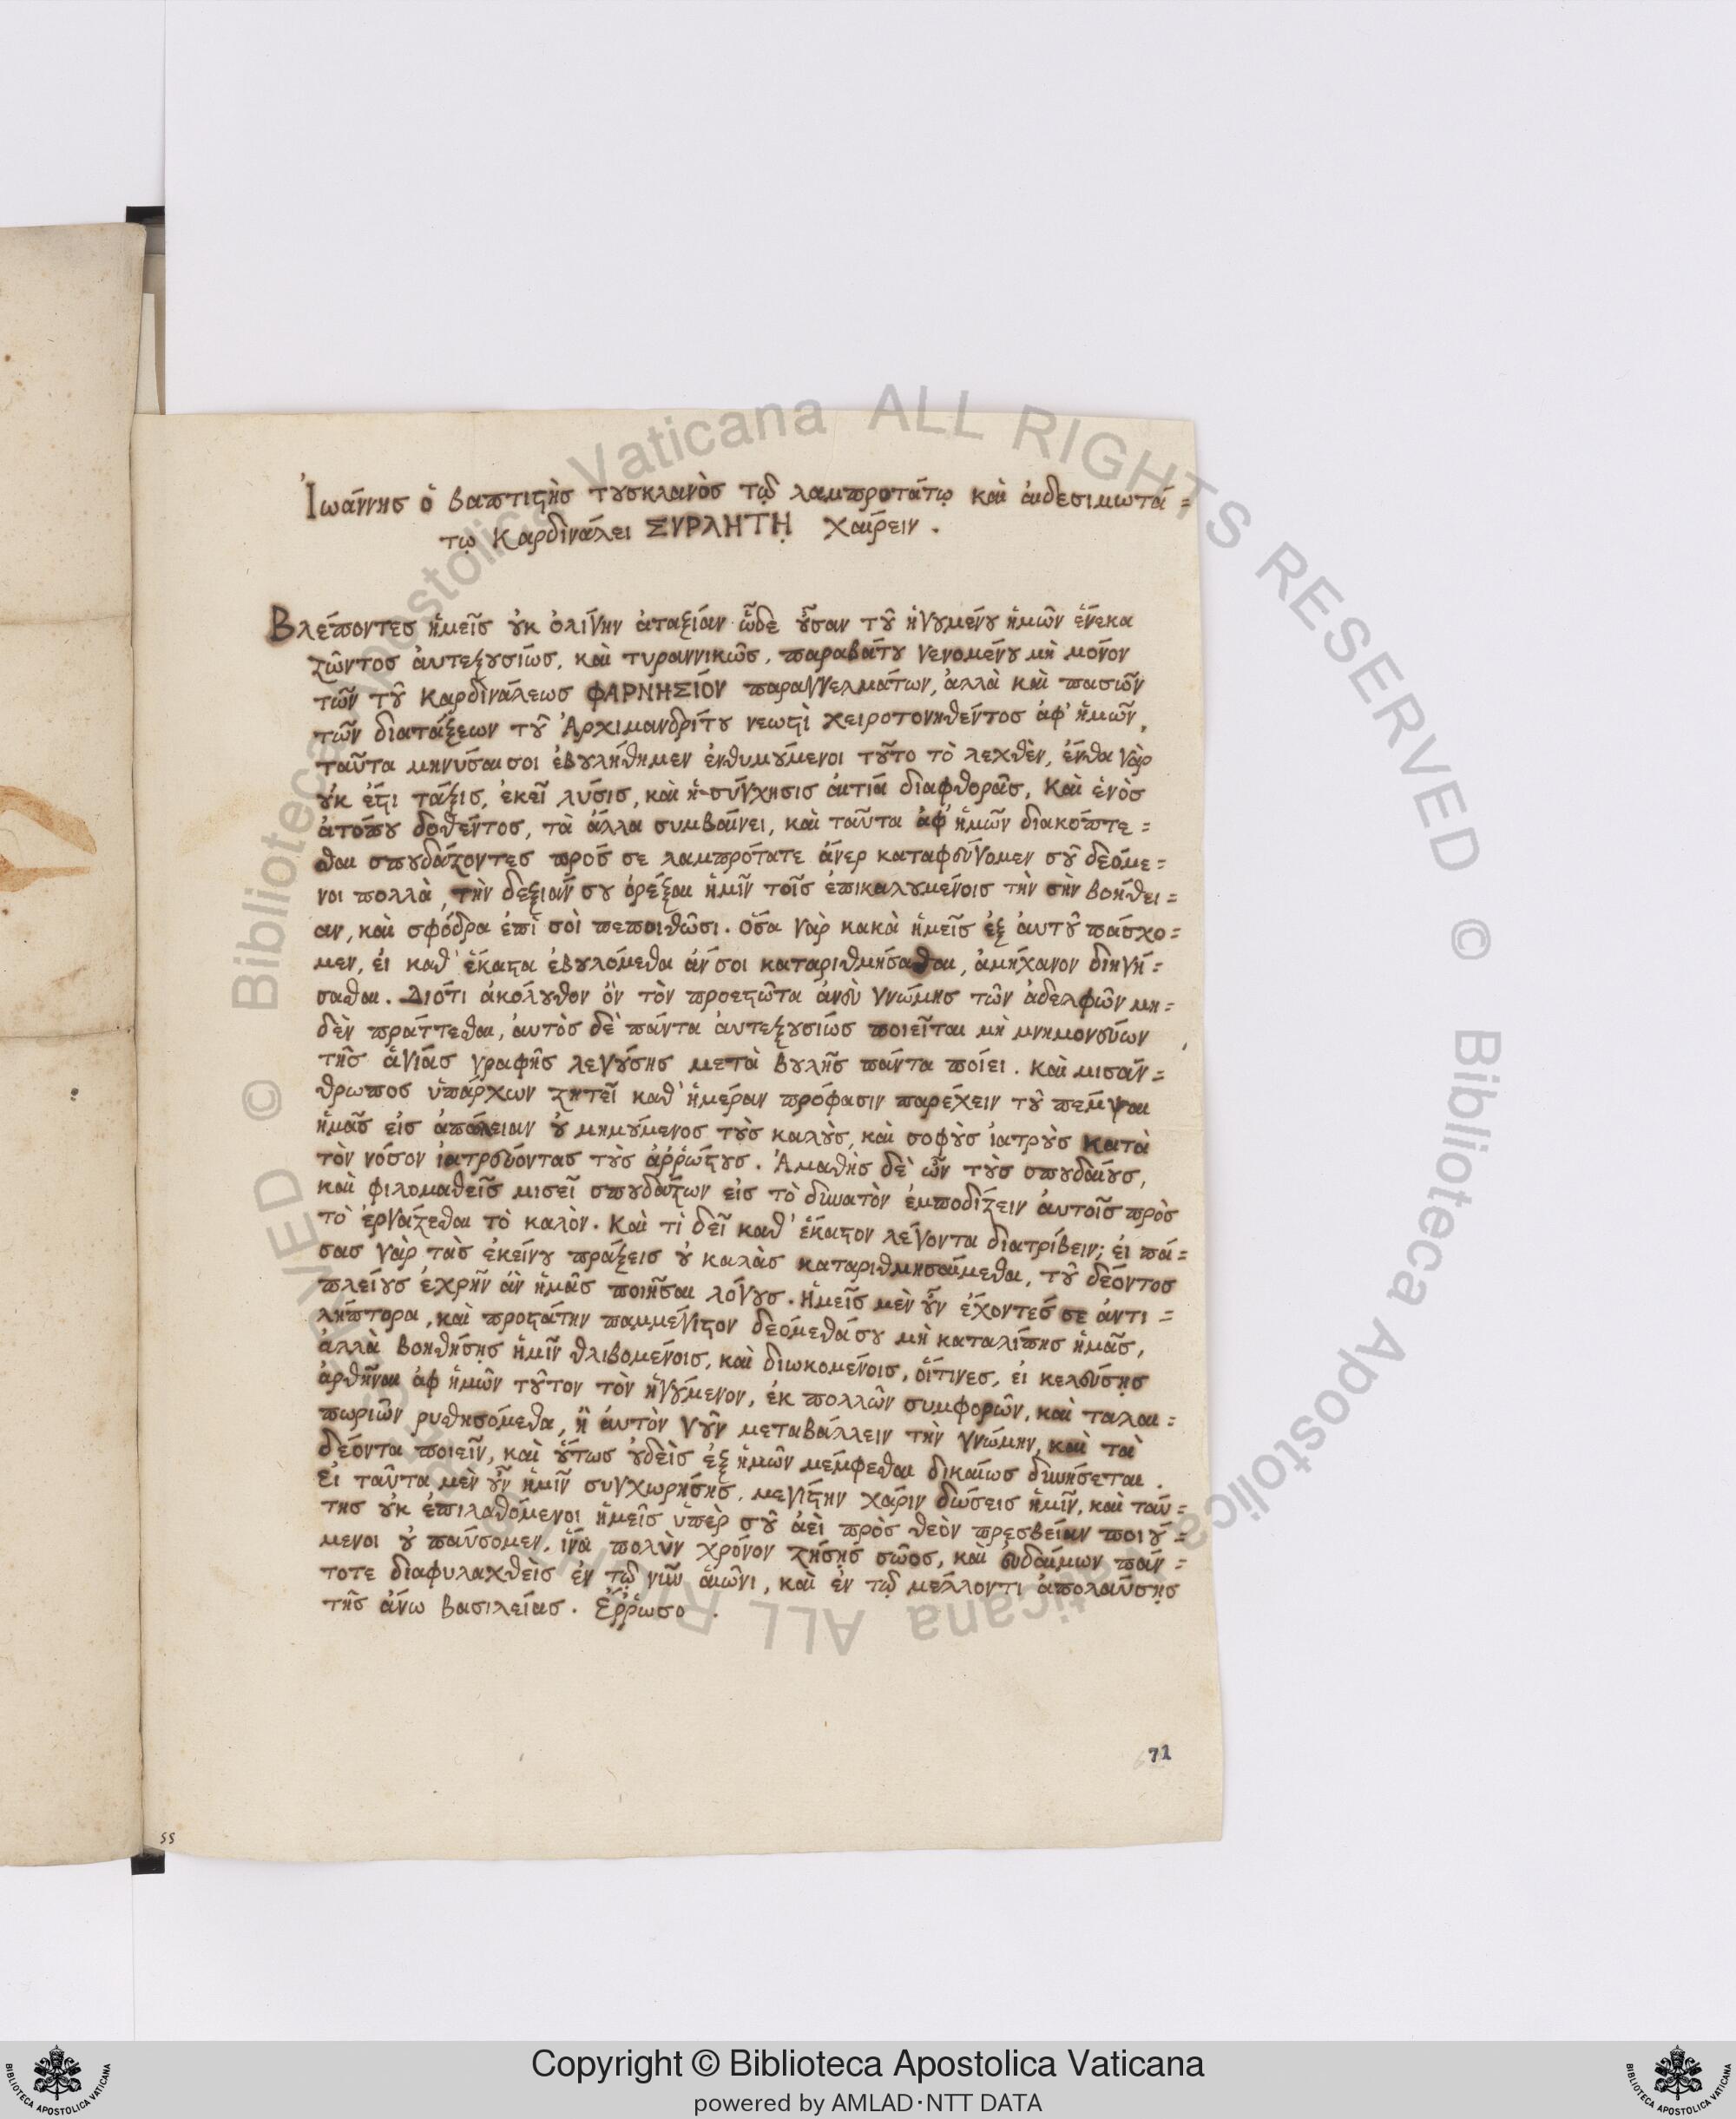 Ἰωάννης ὁ βαπτιστὴς τουσκλανὸς τῷ λαμπροτάτῳ καὶ αἰδεσιμωτά=
τῳ Καρδινάλει ΣΥΡΛΗΤΗ χαίρειν.
Βλέποντες ἡμεῖς οὐκ ὀλίγην ἀταξίαν ὧδε οὖσαν τοῦ ἡγουμένου ἡμῶν ἕνεκα
ζῶντος αὐτεξουσίως, καὶ τυραννικῶς, παραβάτου γενομένου μὴ μόνον
τῶν τοῦ Καρδινάλεως ΦΑΡΝΗΣΙΟΝ παραγγελμάτων, ἀλλὰ καὶ πασῶν
τῶν διατάξεων τοῦ Ἀρχιμανδρίτου νεωστὶ χειροτονηθέντος ἀφ' ἡμῶν,
ταῦτα μηνύσαι σοι ἐβουλήθημεν ἐνθυμούμενοι τοῦτο τὸ λεχθὲν, ἔνθα γὰρ
οὐκ ἔστι τάξις, ἐκεῖ λύσις, καὶ ἡ σύγχησις αἰτία διαφθορᾶς, Καὶ ἑνὸς
ἀτόπου δοθέντος, τὰ ἄλλα συμβαίνει, καὶ ταῦτα ἀφ' ἡμῶν διακόπτε=
σθαι σπουδάζοντες πρός σε λαμπρότατε ἄνερ καταφεύγομεν σοῦ δεόμε=
νοι πολλὰ, τὴν δεξιάν σου ὀρέξαι ἡμῖν τοῖς ἐπικαλουμένοις τὴν σὴν βοήθει=
αν, καὶ σφόδρα ἐπὶ σοὶ πεποιθῶσι. Ὅσα γὰρ κακὰ ἡμεῖς ἐξ αὐτοῦ πάσχο=
μεν, εἰ καθ' ἕκαστα ἐβουλόμεθα ἄν σοι καταριθμήσασθαι, ἀμήχανον διηγή=
σασθαι. Διότι ἀκόλουθον ὂν τὸν προεστῶτα ἄνευ γνώμης τῶν ἀδελφῶν μη=
δὲν πράττεσθαι, αὐτὸς δὲ πάντα αὐτεξουσίως ποιεῖται μὴ μνημονεύων
τῆς ἁγίας γραφῆς λεγούσης μετὰ βουλῆς πάντα ποίει. Καὶ μισάν=
θρωπος ὑπάρχων ζητεῖ καθ' ἡμέραν πρόφασιν παρέχειν τοῦ πέμψαι
ἡμᾶς εἰς ἀπώλειαν οὐ μιμούμενος τοὺς καλοὺς, καὶ σοφοὺς ἰατροὺς κατὰ
τὸν νόσον ἰατρεύοντας τοὺς ἀῤῥώστους. Ἀμαθὴς δὲ ὢν τοὺς σπουδαίους,
καὶ φιλομαθεῖς μισεῖ σπουδάζων εἰς τὸ δυνατὸν ἐμποδίζειν αὐτοῖς πρὸς
τὸ ἐργάζεσθαι τὸ καλὸν. Καὶ τί δεῖ καθ' ἕκαστον λέγοντα διατρίβειν; εἰ πά=
σας γὰρ τὰς ἐκείνου πράξεις οὐ καλὰς καταριθμησαίμεθα, τοῦ δέοντος
πλείους ἐχρῆν ἂν ἡμᾶς ποιῆσαι λόγους. Ἡμεῖς μὲν οὖν ἔχοντές σε ἀντι=
λήπτορα, καὶ προστάτην παμμέγιστον δεόμεθά σου μὴ καταλίπῃς ἡμᾶς,
ἀλλὰ βοηθήσῃς ἡμῖν θλιβομένοις, καὶ διωκομένοις, οἵτινες, εἰ κελεύσῃς
ἀρθῆναι ἀφ ἡμῶν τοῦτον τὸν ἡγούμενον, ἐκ πολλῶν συμφορῶν, καὶ ταλαι=
πωριῶν ρυσθησόμεθα, ἢ αὐτὸν γοῦν μεταβάλλειν τὴν γνώμην, καὶ τὰ
δέοντα ποιεῖν, καὶ οὕτως οὐδεὶς ἐξ ἡμῶν μέμφεσθαι δικαίως δυνήσεται.
Εἰ ταῦτα μὲν οὖν ἡμῖν συγχωρήσῃς, μεγίστην χάριν δώσεις ἡμῖν, καὶ ταύ=
της οὐκ ἐπιλαθόμενοι ἡμεῖς ὑπὲρ σοῦ ἀεὶ πρὸς θεὸν πρεσβείαν ποιού=
μενοι οὐ παύσομεν, ἵνα πολὺν χρόνον ζήσῃς σῶος, καὶ εὐδαίμων πάν=
τοτε διαφυλαχθεὶς ἐν τῷ νῦν αἰῶνι, καὶ ἐν τῷ μέλλοντι ἀπολαύσῃς
τῆς ἄνω βασιλείας. Ἔῤῥωσο.
71
55
© Biblioteca Apostolica Vaticana ALL RIGHTS RESERVED © Biblioteca Apostolica Vaticana ALL RIGHTS RESERVED
Copyright © Biblioteca Apostolica Vaticana
powered by AMLAD·NTT DATA
BIBLIOTECA APOSTOLICA VATICANA
BIBLIOTECA APOSTOLICA VATICANA